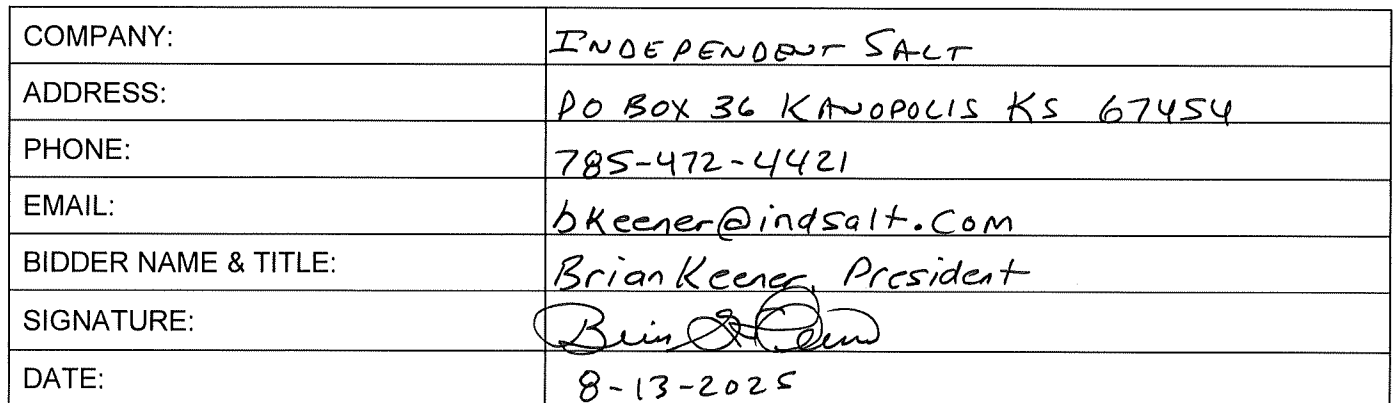 COMPANY: INDEPENDENT SALT
ADDRESS: PO BOX 36 KANOPOLIS KS 67454
PHONE: 785-472-4421
EMAIL: bkeener@indsalt.com
BIDDER NAME & TITLE: Brian Keener, President
SIGNATURE:
DATE: 8-13-2025